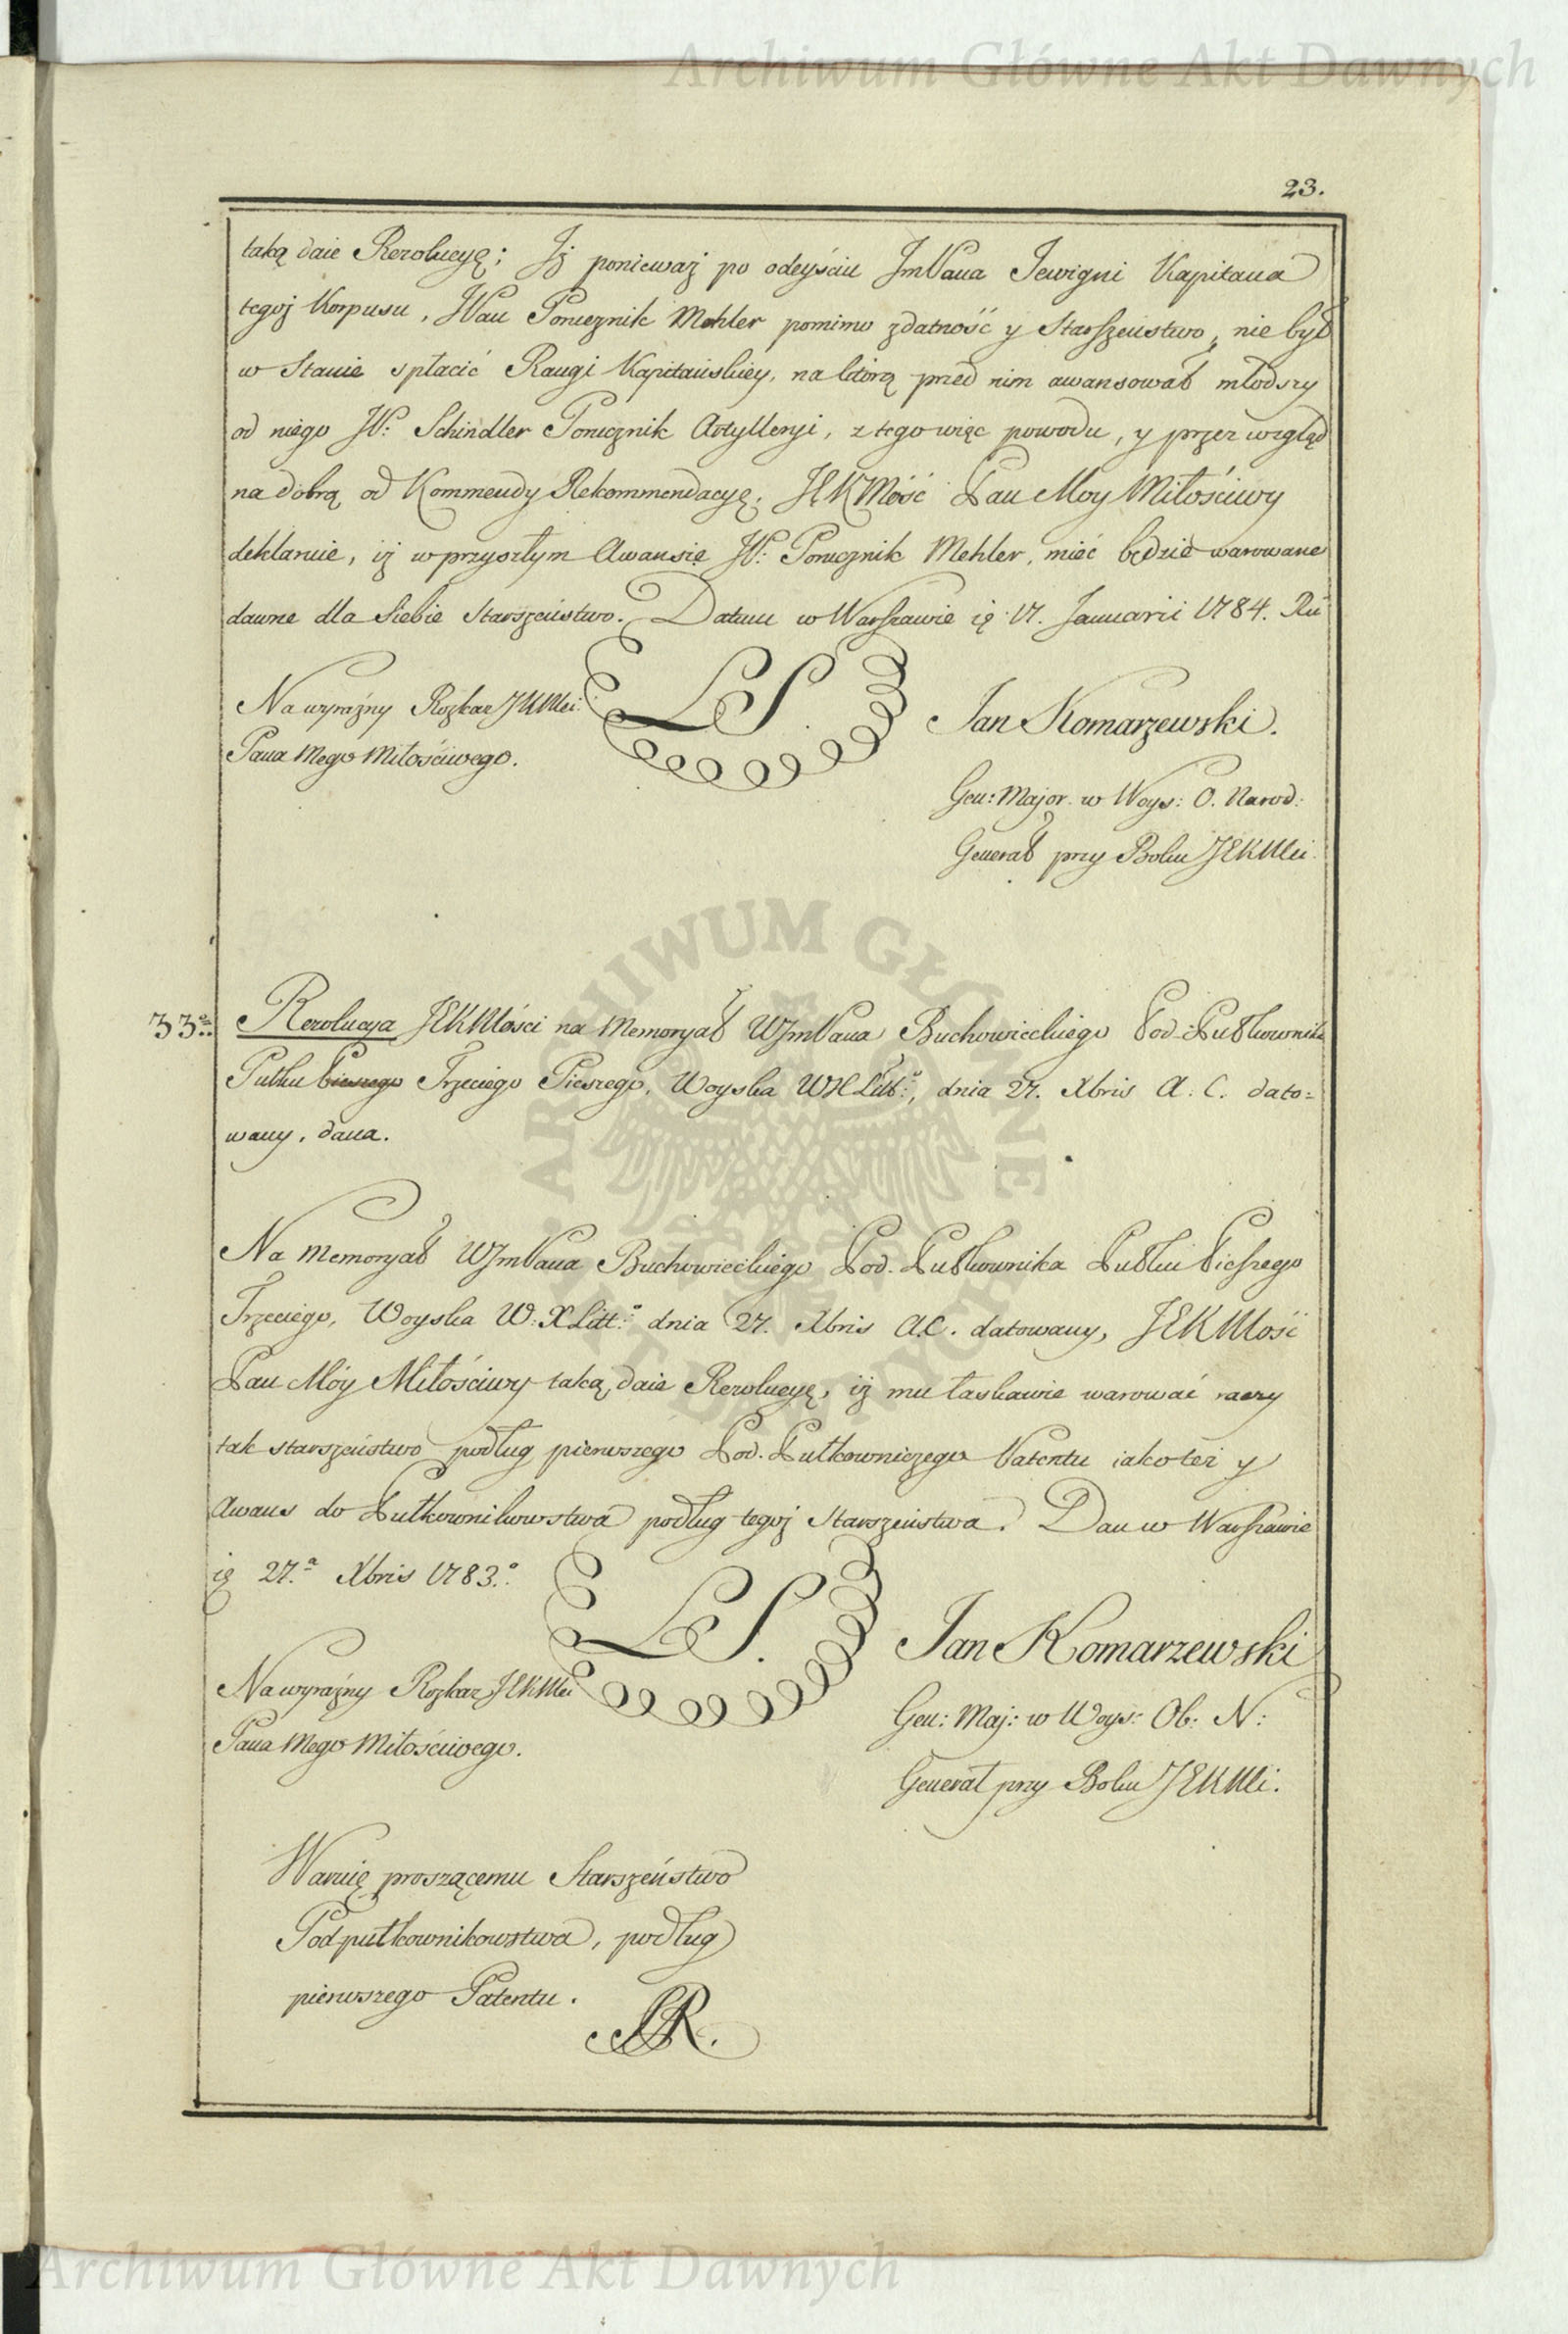 Archiwum Główne Akt Dawnych
23.
taką daie Rezolucyę; Jż ponieważ po odeyściu JmPana Jewigni Kapitana
tegoż Korpusu, JPan Porucznik Mehler pomimo zdatność y Starszeństwo, nie był
w Stanie spłacić Rangi Kapitańskiey, na którą przed nim awansował młodszy
od niego JP: Schindler Porucznik Artylleryi, z tego więc powodu, y przez wzgląd
na dobrą od Kommendy Rekommendacyę; JEKMość Pan Moy Miłościwy
deklaruie, iż w przyszłym Awansie JP: Porucznik Mehler, mieć będzie warowane
dawne dla Siebie Starszeństwo. Datum w Warszawie ię 17. Januarii 1784. Ru
Na wyraźny Rozkaz JKMci:
Pana Mego Miłościwego.
LS.
Jan Komarzewski.
Gen: Major. w Woys: O. Narod:
Generał przy Boku JEKMci.
33º: Rezolucya JEKMości na Memoryał WJmPana Buchowieckiego Pod-Pułkownika
Pułku Pieszego Trzeciego Pieszego, Woyska WXLitt:º, dnia 27. Xbris A. C. dato=
wany, dana.
Na Memoryał WJmPana Buchowieckiego Pod-Pułkownika Pułku Pieszego
Trzeciego, Woyska W. X Litt:º dnia 27. Xbris A.C. datowany, JEKMość
Pan Móy Miłościwy taką daie Rezolucyę, iż mu łaskawie warować raczy
tak starszeństwo podług pierwszego Pod-Pułkowniczego Patentu iako też y
Awans do Pułkownikowstwa podług tegoż Starszeństwa. Dan w Warszawie
ię 27.ª Xbris 1783.º
LS.
Na wyraźny Rozkaz JEKMci
Pana Mego Miłościwego.
Jan Komarzewski
Gen: Maj: w Woys: Ob: N:
Generał przy Boku JEKMci.
Waruię proszącemu Starszeństwo
Podpułkownikowstwa, podług
pierwszego Patentu.
SAR.
ARCHIWUM GŁÓWNE AKT DAWNYCH
Archiwum Główne Akt Dawnych